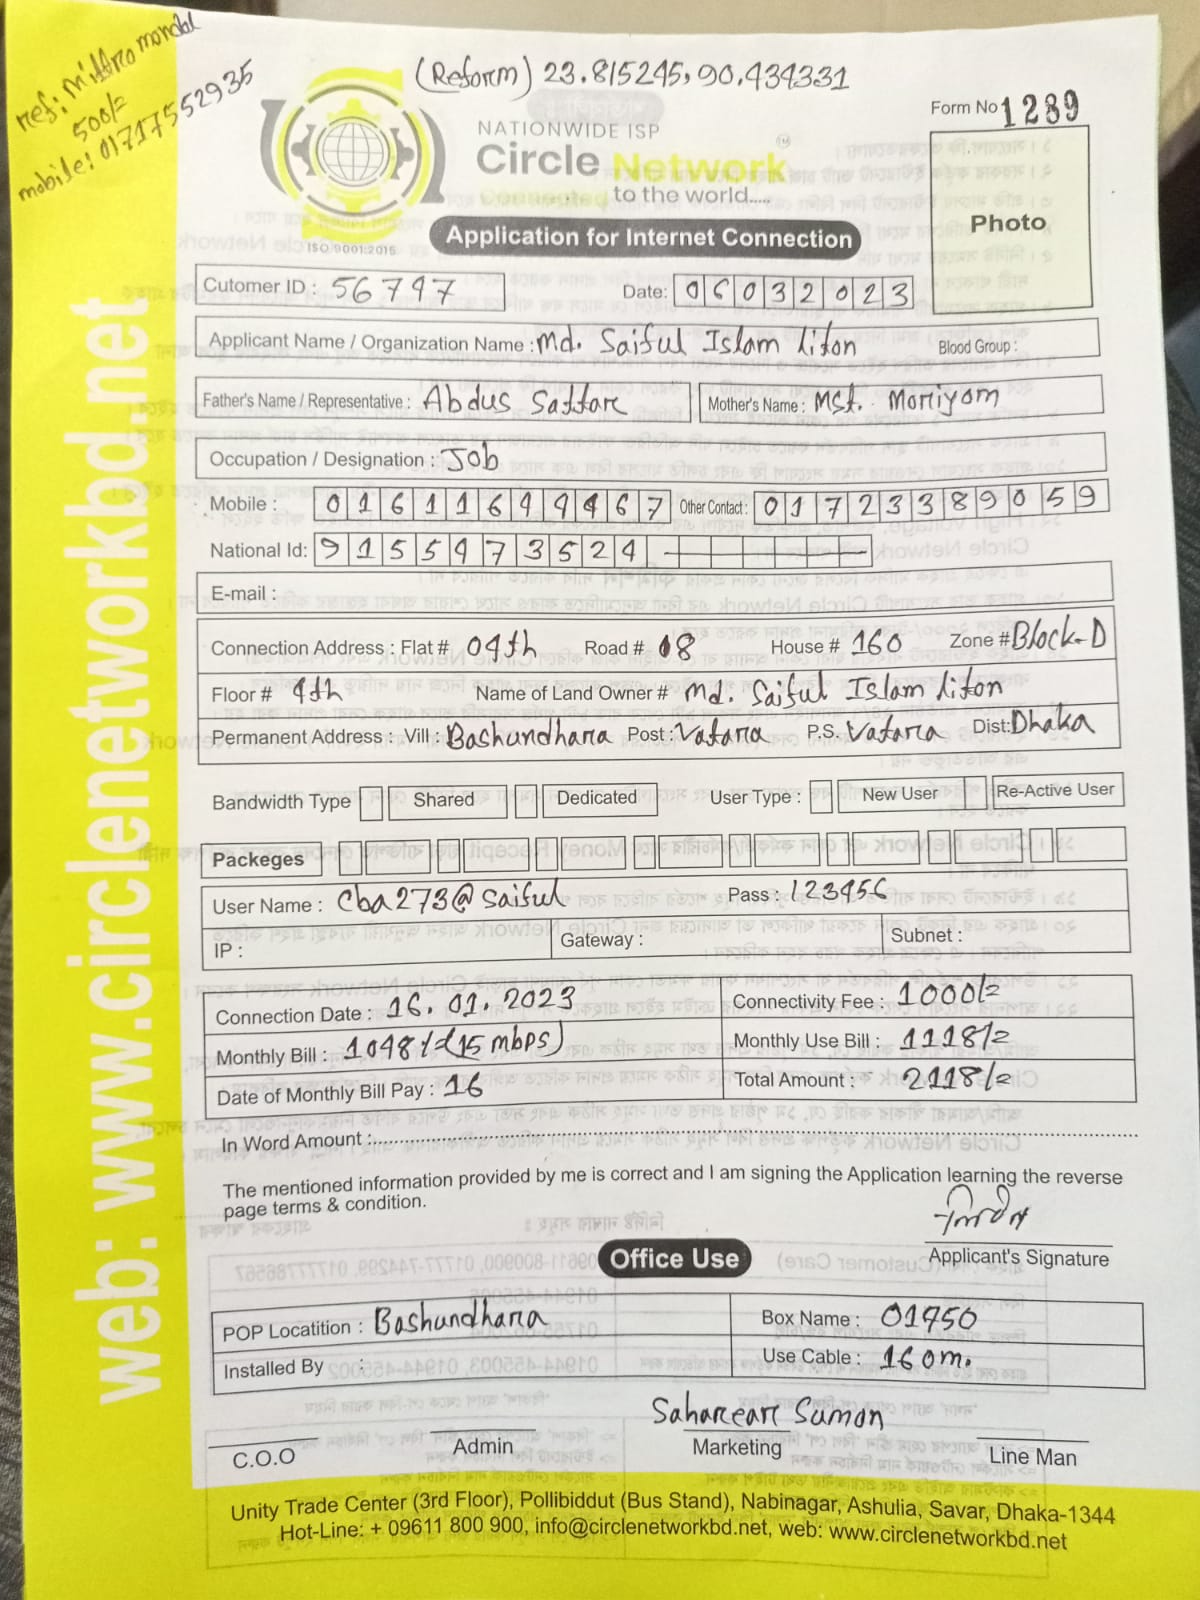 ref: mittro mondal
500/=
mobile: 01717552935
(Reform) 23.815245, 90.434331
NATIONWIDE ISP
Circle Network
to the world.....
ISO 9001:2015
Form No 1289
Photo
Application for Internet Connection
Cutomer ID : 56747
Date: 06032023
Applicant Name / Organization Name : Md. Saiful Islam liton Blood Group :
Father's Name / Representative : Abdus Sattar Mother's Name : Mst. Moriyom
Occupation / Designation : Job
Mobile : Other Contact : 01723389059
National Id: 9155473524
E-mail :
Connection Address : Flat # 04th Road # 18 House # 160 Zone # Block-D
Floor # 4th Name of Land Owner # Md. Saiful Islam liton
Permanent Address : Vill : Bashundhara Post : Vatara P.S. Vatara Dist: Dhaka
Bandwidth Type Shared Dedicated User Type : New User Re-Active User
Packeges
User Name : Cba273@saiful Pass : 123456
IP : Gateway : Subnet :
Connection Date : 16.01.2023 Connectivity Fee : 1000/=
Monthly Bill : 1048/= (15 mbps) Monthly Use Bill : 1118/=
Date of Monthly Bill Pay : 16 Total Amount : 2118/=
In Word Amount :
The mentioned information provided by me is correct and I am signing the Application learning the reverse
page terms & condition.
লিটন
Applicant's Signature
Office Use
POP Locatition : Bashundhara Box Name : 01450
Installed By : Use Cable : 160m.
Sahareare Sumon
C.O.O Admin Marketing Line Man
Unity Trade Center (3rd Floor), Pollibiddut (Bus Stand), Nabinagar, Ashulia, Savar, Dhaka-1344
Hot-Line: + 09611 800 900, info@circlenetworkbd.net, web: www.circlenetworkbd.net
web: www.circlenetworkbd.net